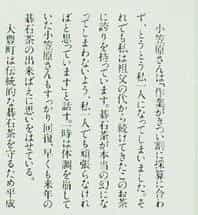 小笠原さんは、「作業がきつい割に採算に合わ
ず、とうとう私一人になってしまいました。そ
れでも私は祖父の代から続けてきたこのお茶
に誇りを持っています。碁石茶が本当の幻にな
ってしまわないよう、私一人でも頑張らなけれ
ばと思っています」と話す。一時は体調を崩して
いた小笠原さんもすっかり回復、早くも来年の
碁石茶の出来ばえに思いをはせている。
大豊町は伝統的な碁石茶を守るため平成